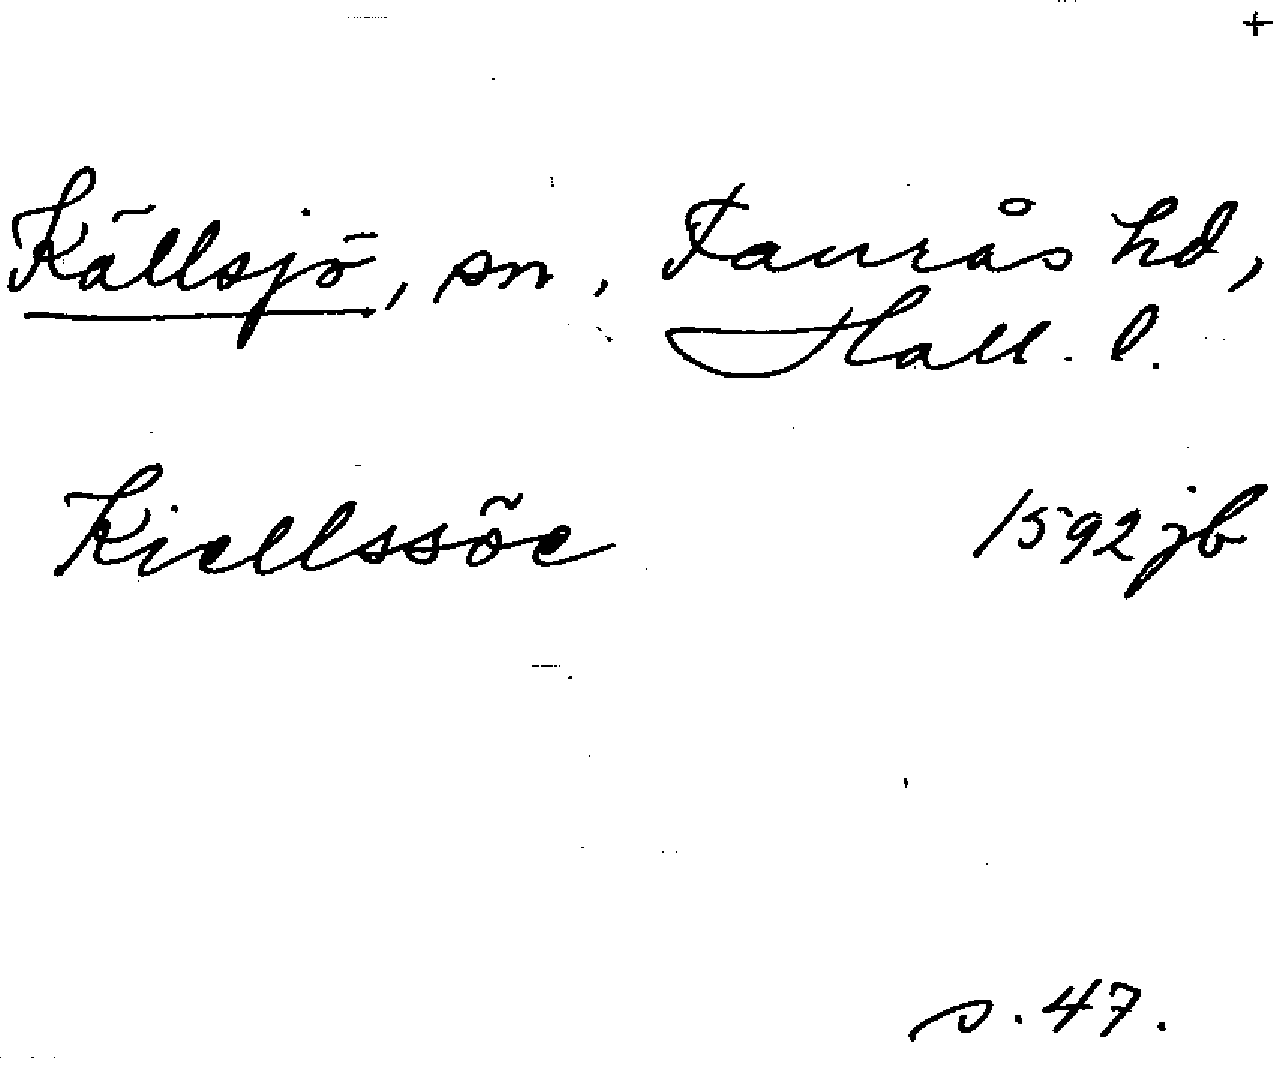 +
Källsjö, sn, Faurås hd,
Hall. l.
Kiellssöe 1592 jb
s. 47.